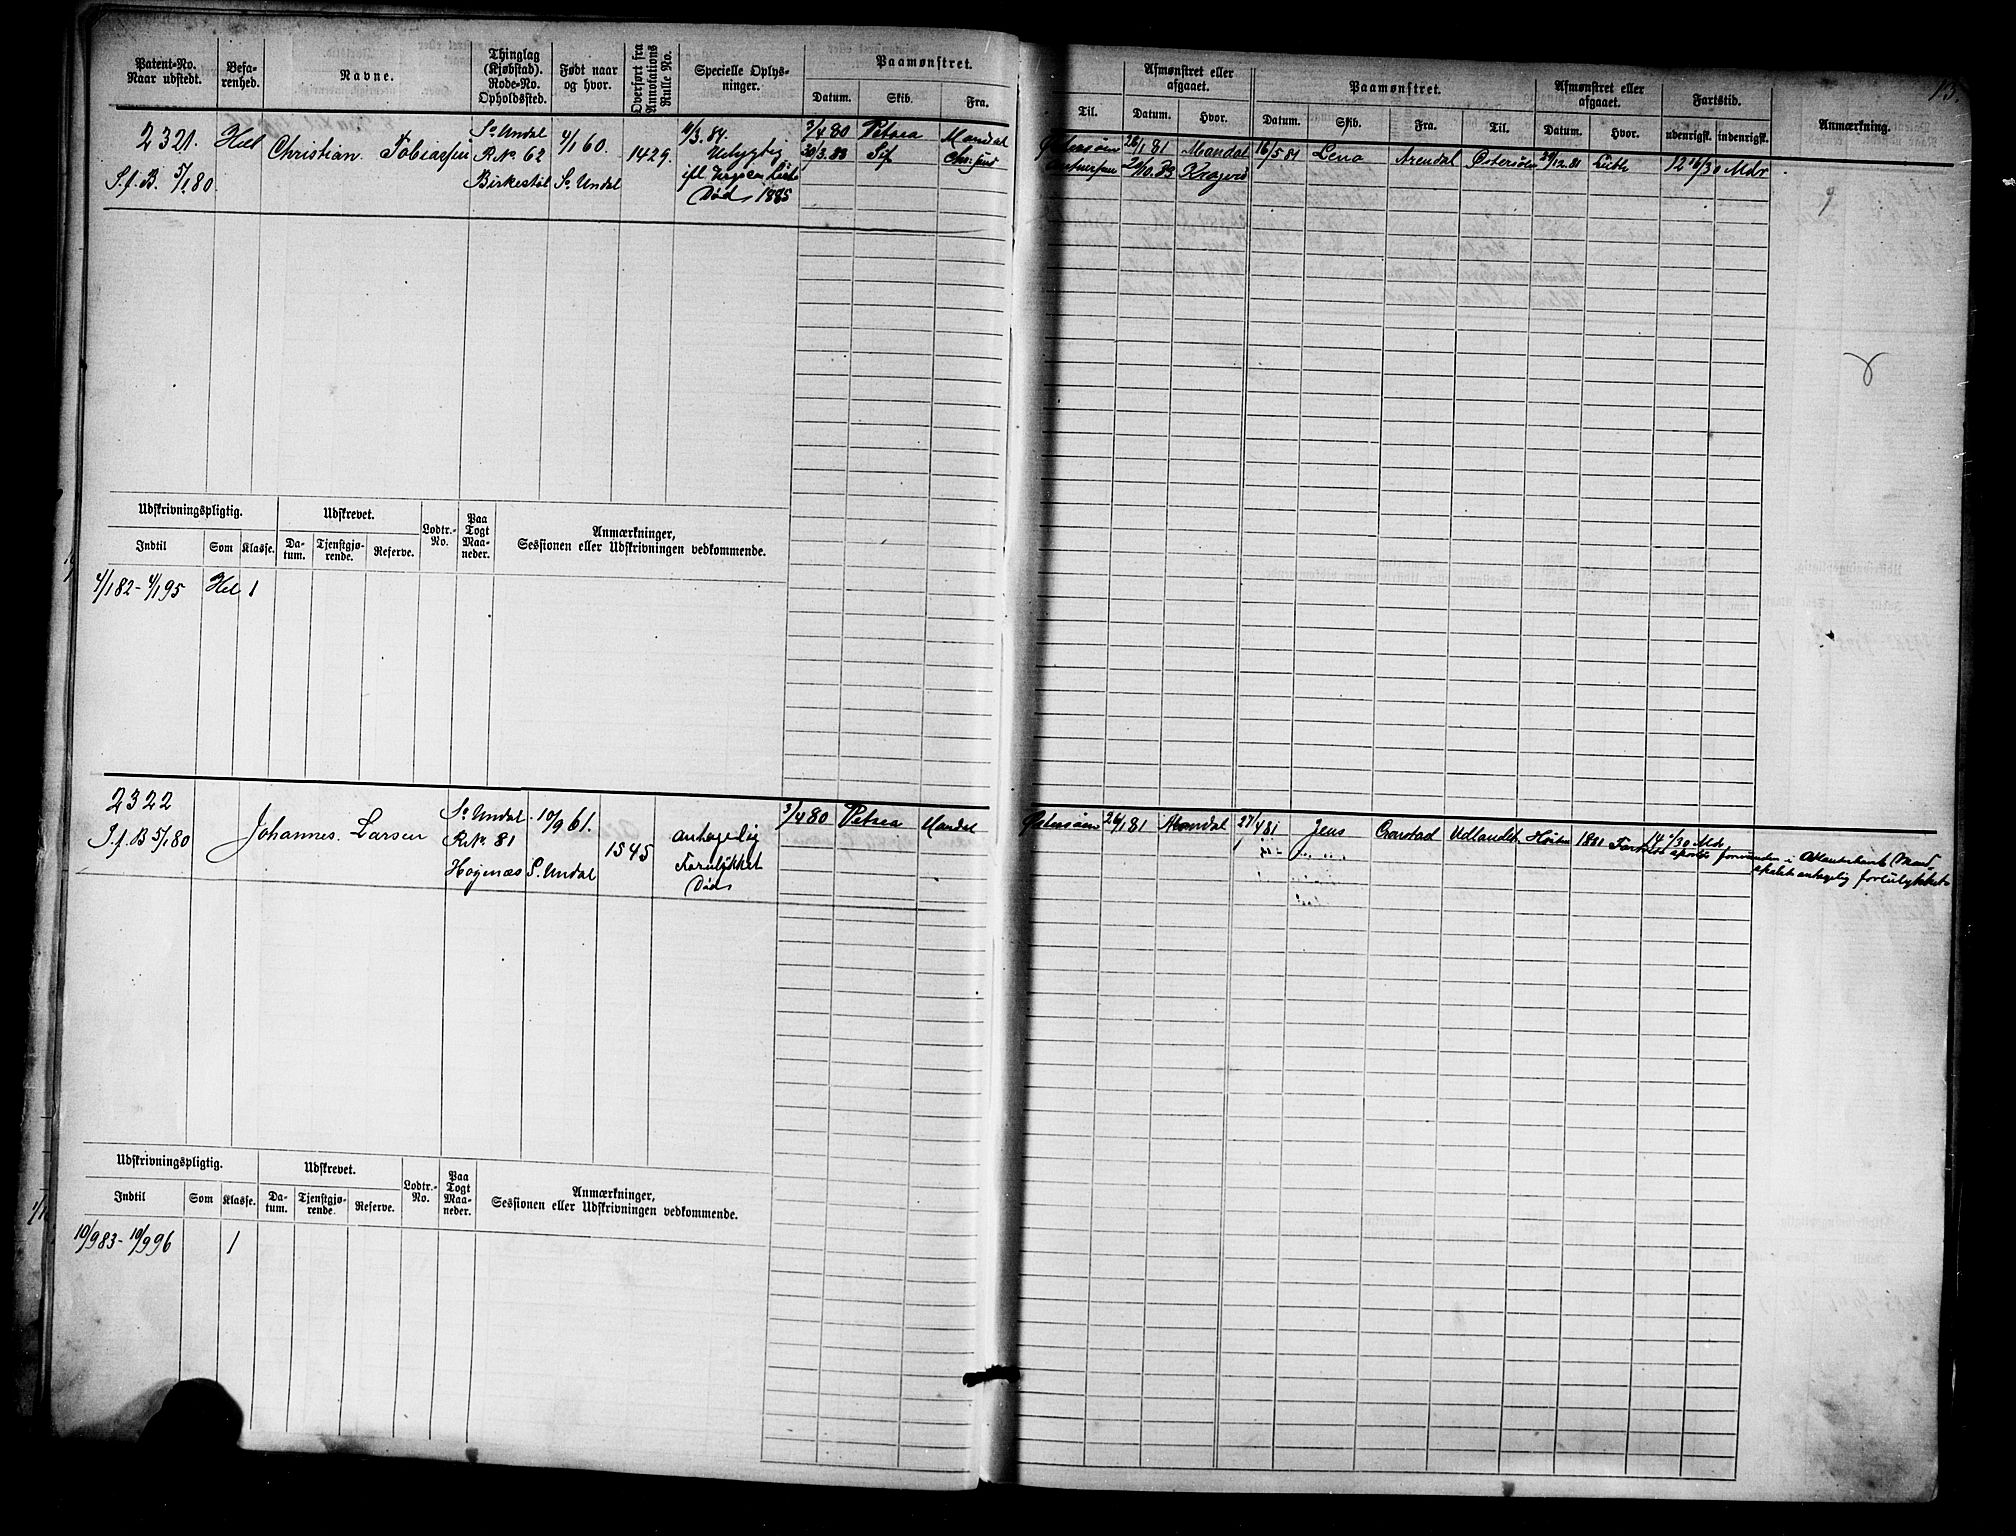 Patent-No.
Naar udstedt.
Befa-
renhed.
Navne.
Thinglag
(Kjøbstad).
Rode-No.
Opholdssted.
Født naar
og hvor.
Overført fra
Annotations
Rulle No.
Specielle Oplys-
ninger.
Paamønstret.
Datum. Skib. Fra. Til.
Afmønstret eller
afgaaet.
Datum. Hvor.
Paamønstret.
Datum. Skib. Fra. Til.
Afmønstret eller
afgaaet.
Datum. Hvor.
Fartstid.
udenrigsk. indenrigsk.
Anmærkning.
13.
2321. Hel Christian Tobiassen So Undal 4/1 60. 1429. 1/3. 84. 3/4 80 Petrea Mandal 26/1 81 Mandal 16/5 81 Lena Arendal Østersøen 29/12.81 12 16/30 Mdr
S.f.B. 5/1 80 R.No 62 So Undal Død 1885 30/3.83 Sif Chr.sund 24/10.83 Kragerø
Birkestøl
Udskrivningspligtig.
Indtil Som Klasse.
Udskrevet.
Da-
tum.
Tjenstgjø-
rende.
Reserve.
Lodtr.-
No.
Paa
Togt
Maa-
neder.
Anmærkninger,
Sessionen eller Udskrivningen vedkommende.
4/1 82 - 4/1 95 Hel 1
2322 Johannes Larsen So Undal 10/9 61. 1545 antagelig 3/4 80 Petrea Mandal Østersøen 26/1 81 Mandal 27/4 81 Jens Udlandet Høsten 1881 14 /30 Mdr
S.f.B 5/1 80 R.No 81 S. Undal Forulykket forsvunden i Atlanterhavet
Høgenæs Død antagelig forulykket
Udskrivningspligtig.
Indtil Som Klasse.
Udskrevet.
Da-
tum.
Tjenstgjø-
rende.
Reserve.
Lodtr.-
No.
Paa
Togt
Maa-
neder.
Anmærkninger,
Sessionen eller Udskrivningen vedkommende.
10/9 83 - 10/9 96 1